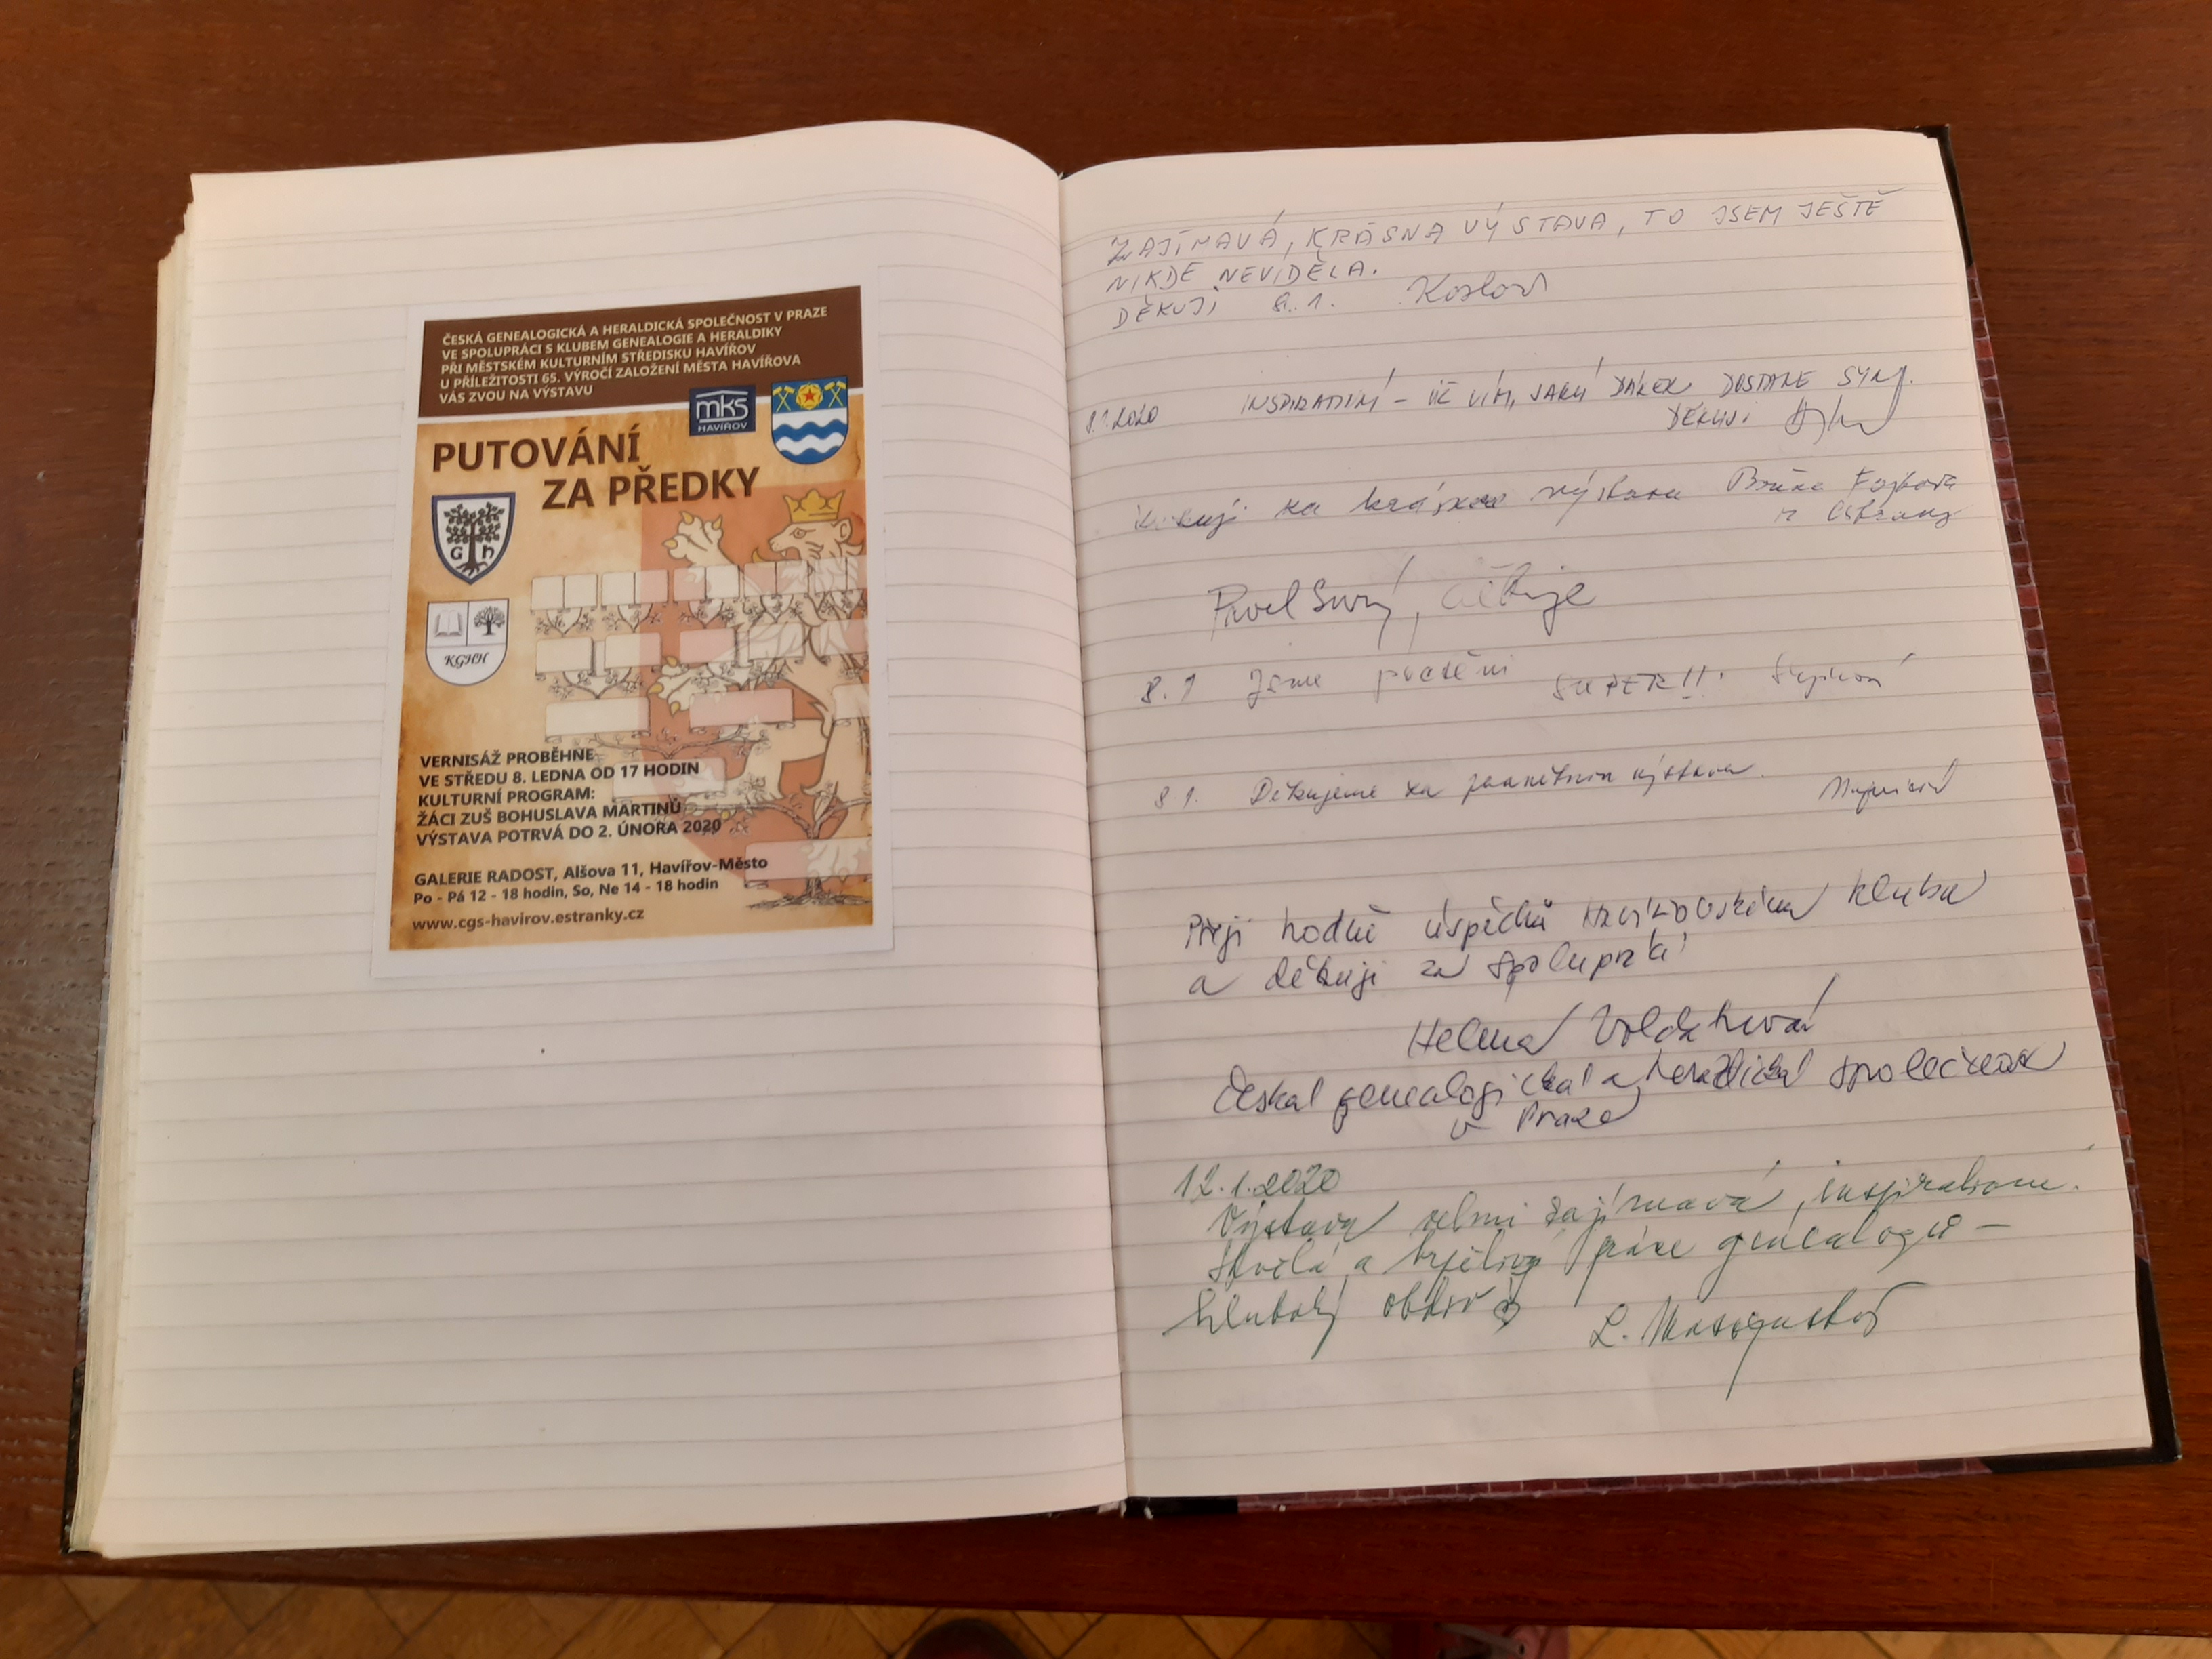 ČESKÁ GENEALOGICKÁ A HERALDICKÁ SPOLEČNOST V PRAZE
VE SPOLUPRÁCI S KLUBEM GENEALOGIE A HERALDIKY
PŘI MĚSTSKÉM KULTURNÍM STŘEDISKU HAVÍŘOV
U PŘÍLEŽITOSTI 65. VÝROČÍ ZALOŽENÍ MĚSTA HAVÍŘOVA
VÁS ZVOU NA VÝSTAVU
mks
HAVÍŘOV
PUTOVÁNÍ
ZA PŘEDKY
G H
KGHH
VERNISÁŽ PROBĚHNE
VE STŘEDU 8. LEDNA OD 17 HODIN
KULTURNÍ PROGRAM:
ŽÁCI ZUŠ BOHUSLAVA MARTINŮ
VÝSTAVA POTRVÁ DO 2. ÚNORA 2020
GALERIE RADOST, Alšova 11, Havířov-Město
Po - Pá 12 - 18 hodin, So, Ne 14 - 18 hodin
www.cgs-havirov.estranky.cz
ZAJÍMAVÁ, KRÁSNA VÝSTAVA, TO JSEM JEŠTĚ
NIKDE NEVIDĚLA.
DĚKUJI 8.1.
8.1.2020 INSPIRATIVNÍ - UŽ VÍM, JAKÝ DÁREK DOSTANE SYN.
DĚKUJI
za krásnou výstavu
z Ostravy
Pavel Surý, děkuje
8.1 Jsme potěšeni SUPER!!
8 1. Děkujeme za výstavu.
Přeji hodně úspěchů Havířovskému klubu
a děkuji za spolupráci
Helena Voldánová
Česká genealogická a heraldická společnost
v Praze
12.1.2020
Výstava velmi zajímavá, inspirativní.
Skvělá a trpělivá práce genealogů -
hluboký obdiv
L.